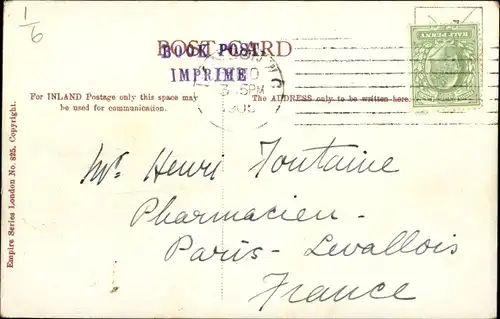 1/6
POST CARD
BOOK POST.
IMPRIMÉ
HALF PENNY
For INLAND Postage only this space may
be used for communication.
The ADDRESS only to be written here.
Mr. Henri Fontaine
Pharmacien -
Paris - Levallois
France
Empire Series London No. 825. Copyright.